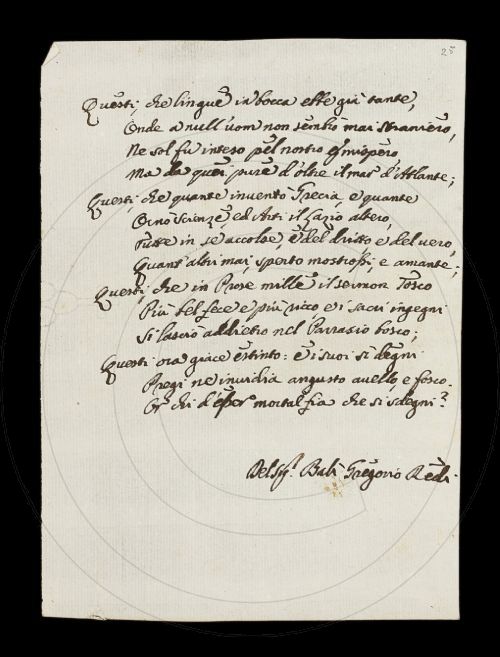 25
Questi, che lingue in bocca ebbe già tante,
Onde a null'uom non sembrò mai straniero,
Ne sol fu inteso pel nostro Emispero
Ma da quei pure d'oltre il mar d'Atlante;
Questi, che quante inventò Grecia, e quante
Ornò Scienze, ed Arti il Lazio altero,
Tutte in se accolse, e del dritto e del vero,
Quant'altri mai, sperto mostrossi, e amante;
Questi, che in Prose mille il sermon Tosco
Più bel fece e più ricco, e i sacri ingegni
Si lasciò addietro nel Parrasio bosco;
Questi ora giace estinto: e i suoi sì degni
Pregi ne invidia angusto avello, e fosco.
Or chi d'esser mortal fia che si sdegni?
Del Sigr. Balì Gregorio Redi